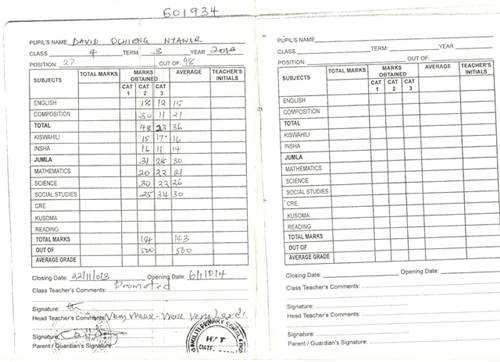 601934
PUPIL'S NAME DAVID OCHIENG
CLASS 4 TERM: 3 YEAR
POSITION: 27 OUT OF: 98
SUBJECTS TOTAL MARKS MARKS OBTAINED AVERAGE TEACHER'S INITIALS
CAT 1 CAT 2 CAT 3
ENGLISH 18 12 15
COMPOSITION 30 11 21
TOTAL 48 23 36
KISWAHILI 15 17 16
INSHA 16 11 14
JUMLA 31 28 30
MATHEMATICS 20 22 21
SCIENCE 30 22 26
SOCIAL STUDIES 25 34 30
CRE
KUSOMA
READING
TOTAL MARKS 143
OUT OF 500 500
AVERAGE GRADE
Closing Date: Opening Date:
Class Teacher's Comments: Promoted
Signature:
Head Teacher's Comments: Work Very hard.
Signature:
Parent / Guardian's Signature:
H/T
DATE
PUPIL'S NAME
CLASS TERM: YEAR
POSITION: OUT OF:
SUBJECTS TOTAL MARKS MARKS OBTAINED AVERAGE TEACHER'S INITIALS
CAT 1 CAT 2 CAT 3
ENGLISH
COMPOSITION
TOTAL
KISWAHILI
INSHA
JUMLA
MATHEMATICS
SCIENCE
SOCIAL STUDIES
CRE
KUSOMA
READING
TOTAL MARKS
OUT OF
AVERAGE GRADE
Closing Date: Opening Date:
Class Teacher's Comments:
Signature:
Head Teacher's Comments:
Signature:
Parent / Guardian's Signature: